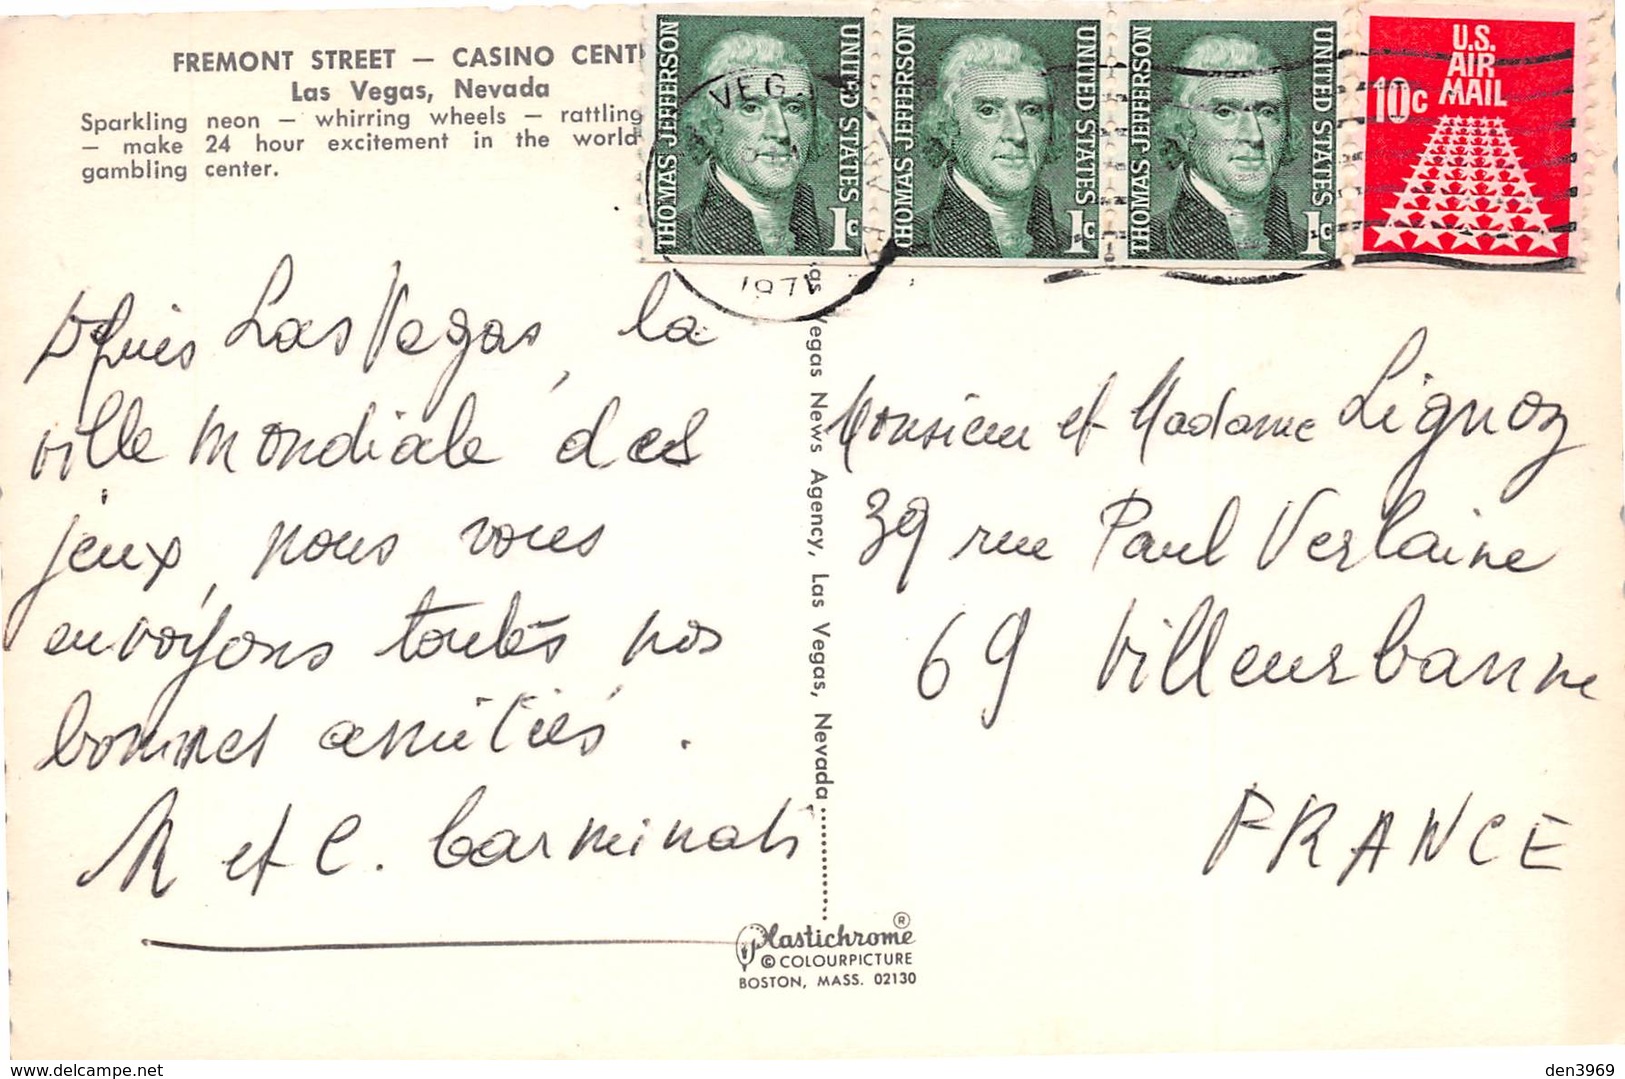 FREMONT STREET — CASINO CENT
Las Vegas, Nevada
Sparkling neon — whirring wheels — rattling
— make 24 hour excitement in the world
gambling center.
THOMAS JEFFERSON UNITED STATES 1c
THOMAS JEFFERSON UNITED STATES 1c
THOMAS JEFFERSON UNITED STATES 1c
U.S.
AIR
MAIL
10c
VEG
1971
Depuis Las Vegas, la
ville mondiale des
jeux, nous vous
envoyons toutes nos
bonnes amitiés.
M et C. Carminati
as Vegas News Agency, Las Vegas, Nevada
Monsieur et Madame Lignoz
39 rue Paul Verlaine
69 Villeurbanne
FRANCE
Plastichrome ®
© COLOURPICTURE
BOSTON, MASS. 02130
www.delcampe.net
den3969